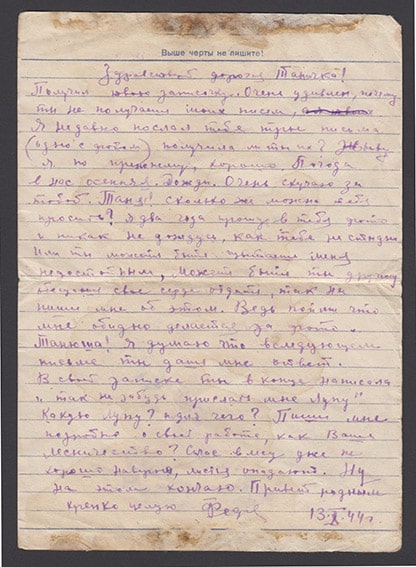 Выше черты не пишите!
Здравствуй дорогая Танечка!
Получил твою записочку. Очень удивлен, почему
ты не получаешь моих писем,
Я недавно послал тебе три письма
(одно с фото) получила ли ты их? Живу
я по прежнему, хорошо. Погода
в нас осенняя. Дожди. Очень скучаю за
тобой. Таня! Сколько же можно тебя
просить? Я два года прошу в тебя фото
и никак не дождусь, как тебе не стыдно.
Или ты может быть считаешь меня
недостойным, может быть ты другому
обещаешь свое сердце отдать, так на
пиши мне об этом. Ведь пойми что
мне обидно делается за фото.
Танюша! Я думаю что в следующем
письме ты дашь мне ответ.
В своей записке ты в конце написала
"так не забудь прислать мне Луну"
Какую Луну? для чего? Пиши мне
подробно о своей работе, как Ваше
лесничество? Сейчас в лесу уже не
хорошо наверно, листья опадают. Ну
на этом кончаю. Привет родным
крепко целую Федя 13.X.44г.